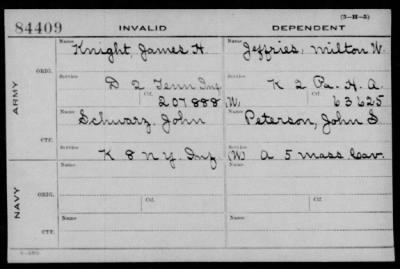 (3-H-5)
84409 INVALID DEPENDENT
Name Knight, James H. Name Jeffries, Milton W.
ARMY
ORIG. Service D 2 Tenn Inf. Service K 2 Pa. H. A.
Ctf. 207888 (W) Ctf. 63625
Name Schwarz, John Name Peterson, John S
CTF. Service K 8 N.Y. Inf Service (W) A 5 Mass Cav.
Name Name
NAVY
ORIG. Service Ctf. Service Ctf.
Name Name
CTF. Service Service